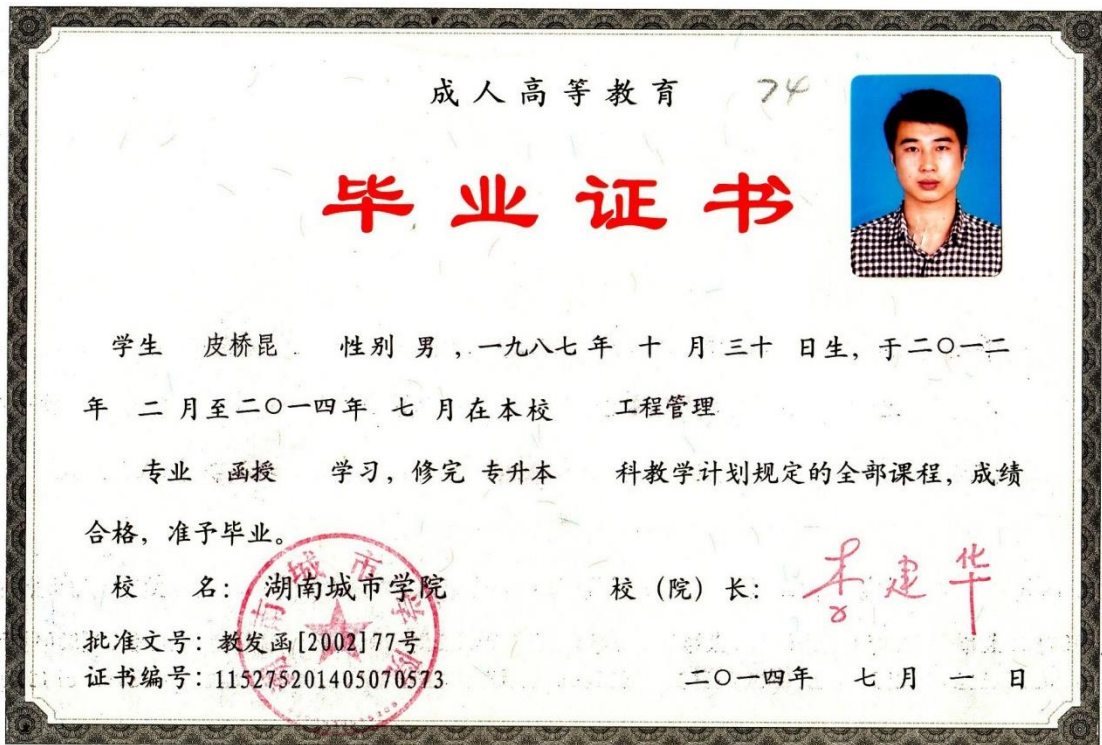 成人高等教育 74
毕业证书
学生 皮桥昆 性别 男 , 一九八七 年 十 月 三十 日生, 于二〇一二
年 二 月至二〇一四年 七 月在本校 工程管理
专业 函授 学习, 修完 专升本 科教学计划规定的全部课程, 成绩
合格, 准予毕业。
校 名: 湖南城市学院 校 (院) 长: 李建华
批准文号: 教发函[2002]77号
证书编号: 115275201405070573 二〇一四年 七 月 一 日
湖南城市学院